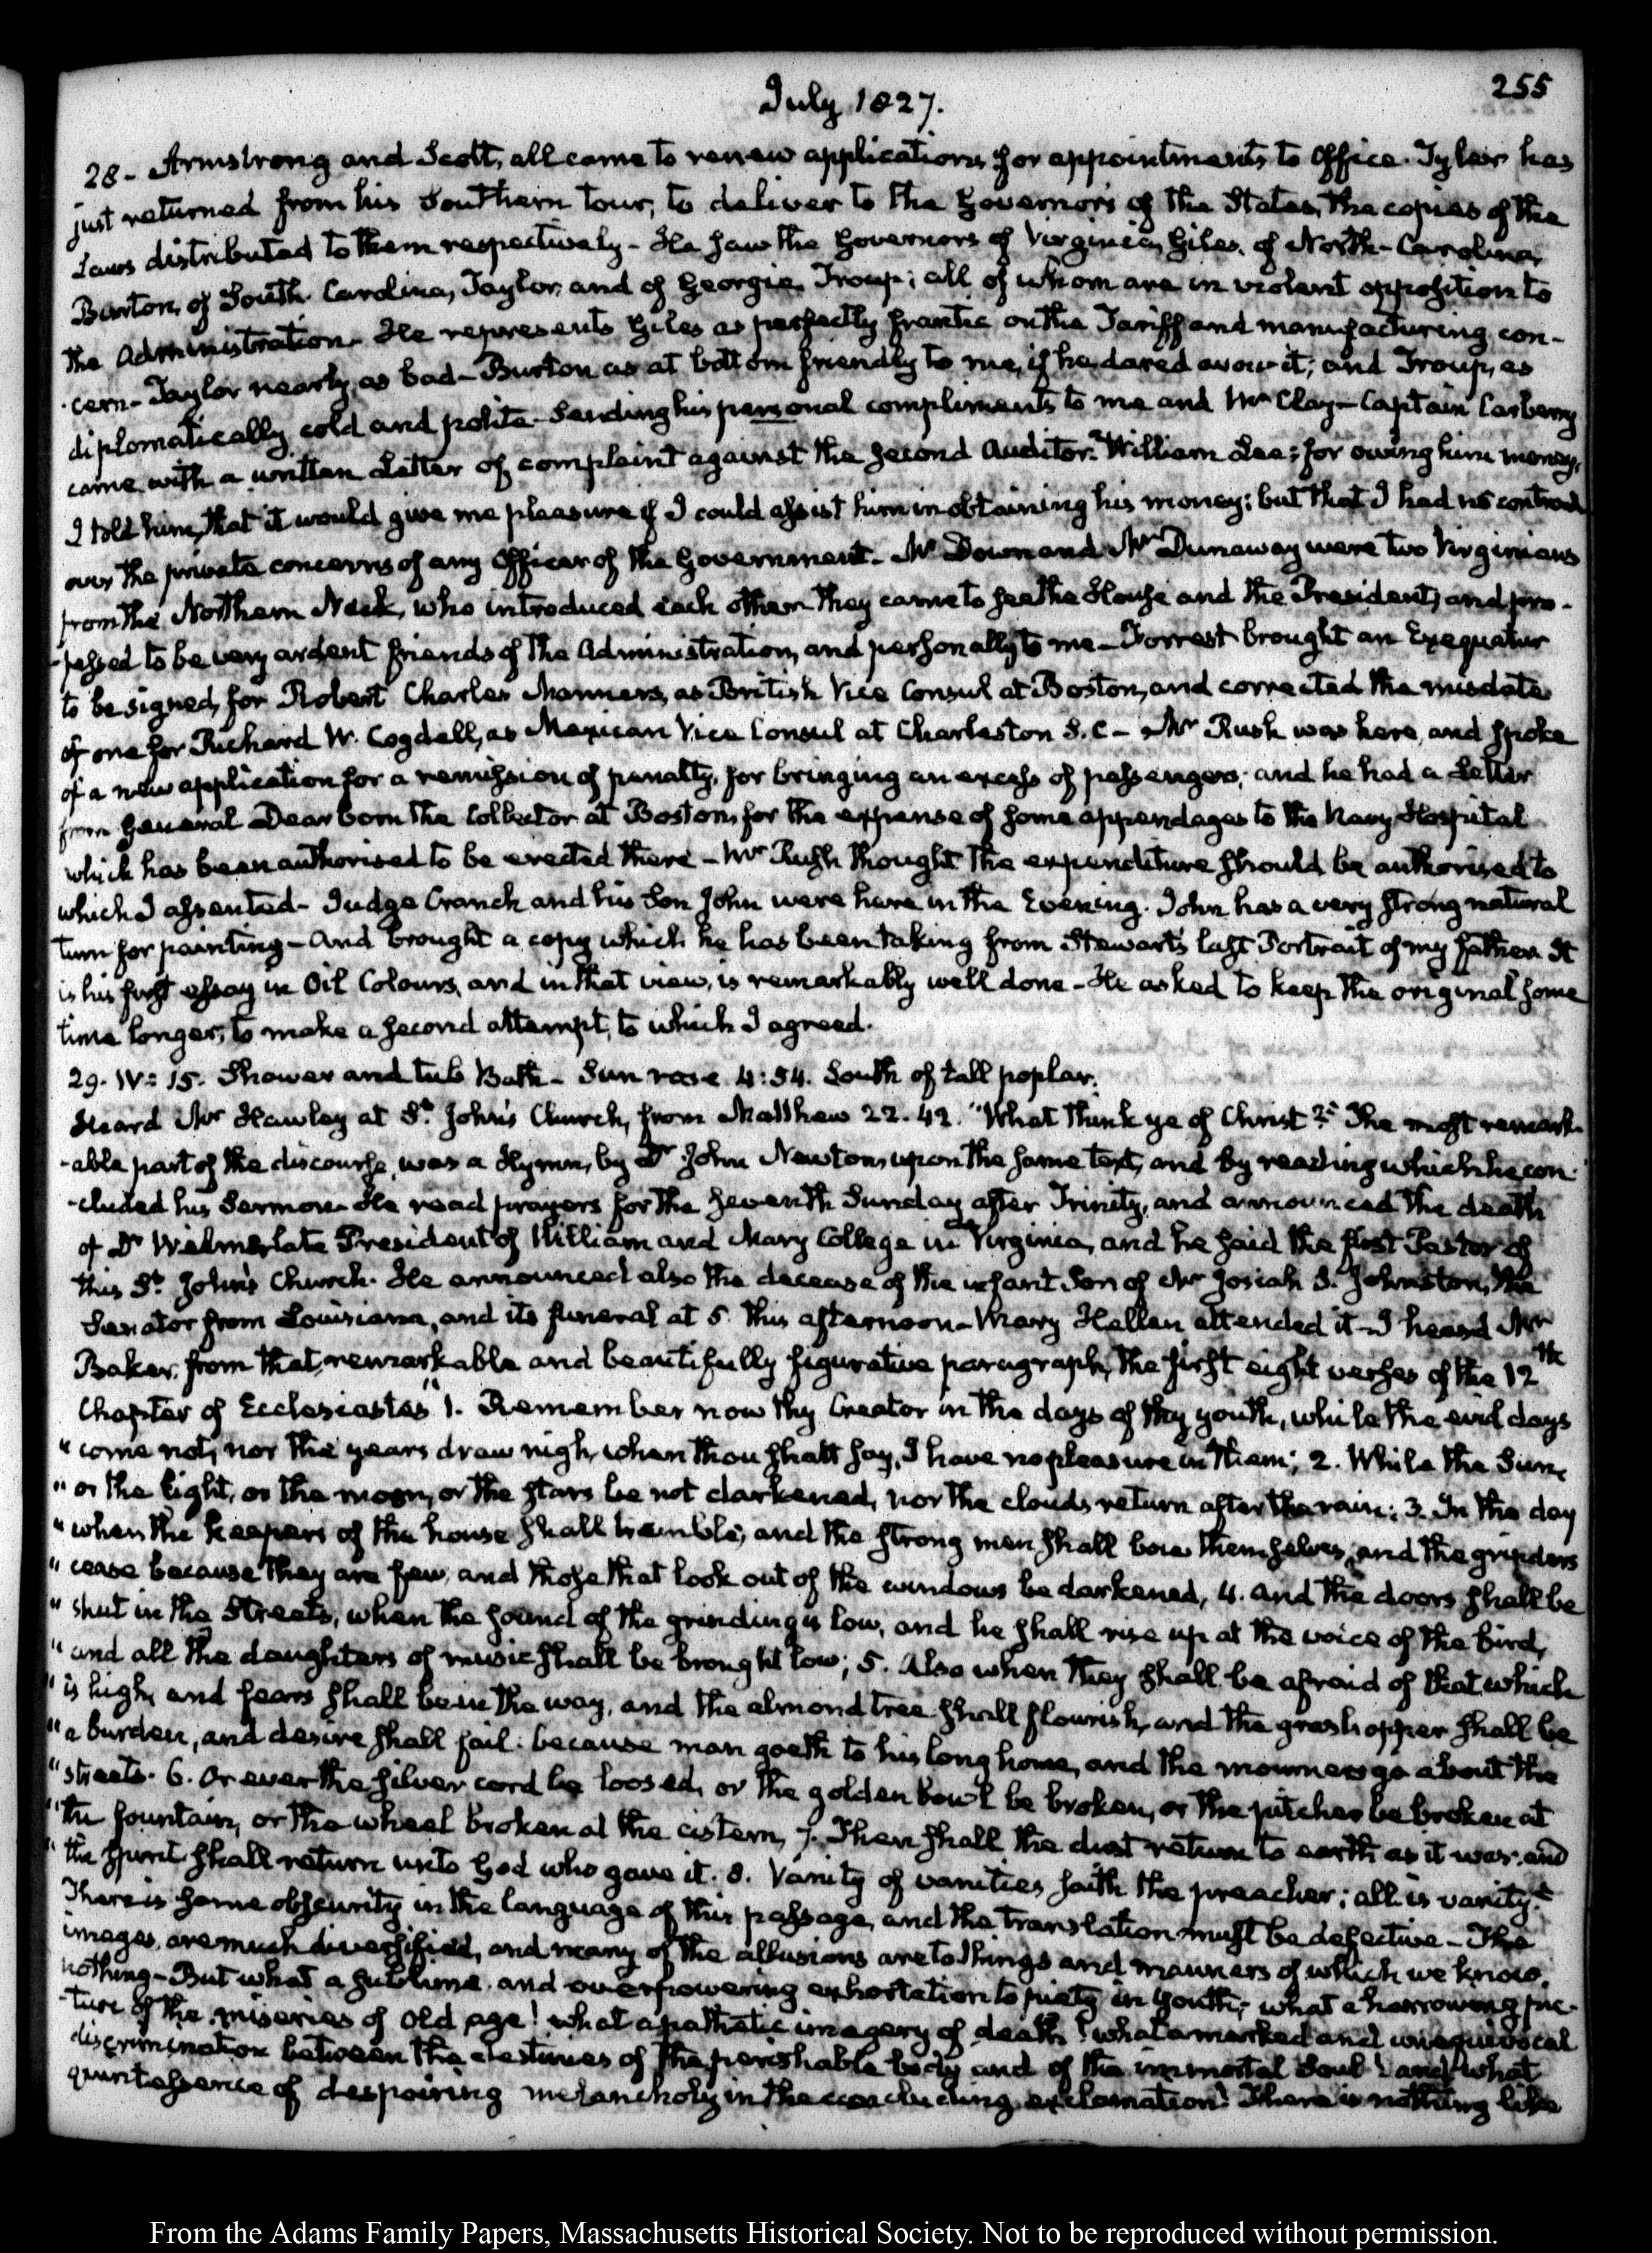 255
July 1827.
28- Armstrong and Scott, all came to renew applications for appointments to Office. Tyler has
just returned from his Southern tour, to deliver to the Governors of the States, the copies of the
Laws distributed to them respectively- He saw the Governors of Virginia, Giles, of North-Carolina,
Burton, of South Carolina, Taylor, and of Georgia, Troup; all of whom are in violent opposition to
the Administration- He represents Giles as perfectly frantic on the Tariff and manufacturing con-
-cern- Taylor nearly as bad- Burton as at bottom friendly to me, if he dared avow it; and Troup, as
diplomatically cold and polite- Sending his personal compliments to me and Mr Clay- Captain Carbery
came with a written Letter of complaint against the second Auditor William Lee; for owing him money,
I told him, that it would give me pleasure if I could assist him in obtaining his money; but that I had no controul
over the private concerns of any Officer of the Government- Mr Down and Mr Dunaway were two Virginians
from the Northern Neck, who introduced each other. They came to see the House and the President, and pro-
-fessed to be very ardent friends of the Administration, and personally to me- Forrest brought an Exequatur
to be signed, for Robert Charles Manners, as British Vice Consul at Boston, and corrected the misdate
of one for Richard W. Cogdell, as Mexican Vice Consul at Charleston S.C- Mr Rush was here, and spoke
of a new application for a remission of penalty, for bringing an excess of passengers; and he had a Letter
from General Dearborn the Collector at Boston, for the expense of some appendages to the Navy Hospital
which has been authorised to be erected there- Mr Rush thought the expenditure should be authorised to
which I assented- Judge Cranch and his Son John were here in the Evening. John has a very strong natural
turn for painting- And brought a copy which he has been taking from Stewart's last Portrait of my father. It
is his first essay in Oil Colours, and in that view, is remarkably well done- He asked to keep the original some
time longer, to make a second attempt, to which I agreed.
29. IV: 15. Shower and tub Bath- Sun rose 4:54. South of tall poplar.
Heard Mr Hawley at St. John's Church, from Matthew 22. 42. "What think ye of Christ?" The most remark-
-able part of the discourse, was a Hymn, by Dr John Newton, upon the same text, and by reading which he con-
-cluded his Sermon- He read prayers for the seventh Sunday after Trinity, and announced the death
of Dr Wilmer, late President of William and Mary College in Virginia, and he said the first Pastor of
this St. John's Church. He announced also the decease of the infant Son of Mr Josiah S. Johnston, the
Senator from Louisiana, and its funeral at 5. this afternoon- Mary Hellen attended it- I heard Mr
Baker, from that remarkable and beautifully figurative paragraph, the first eight verses of the 12th
Chapter of Ecclesiastes "1. Remember now thy Creator in the days of thy youth, while the evil days
"come not, nor the years draw nigh, when thou shalt say, I have no pleasure in them; 2. While the Sun,
"or the light, or the moon, or the stars be not darkened, nor the clouds return after the rain: 3. In the day
"when the keepers of the house shall tremble, and the strong men shall bow themselves, and the grinders
"cease because they are few, and those that look out of the windows be darkened, 4. And the doors shall be
"shut in the Streets, when the sound of the grinding is low, and he shall rise up at the voice of the bird,
"and all the daughters of music shall be brought low; 5. Also when they shall be afraid of that which
"is high, and fears shall be in the way, and the almond tree shall flourish, and the grashopper shall be
"a burden, and desire shall fail: because man goeth to his long home, and the mourners go about the
"streets. 6. Or ever the silver cord be loosed, or the golden bowl be broken, or the pitcher be broken at
"the fountain, or the wheel broken at the cistern, 7. Then shall the dust return to earth as it was: and
"the spirit shall return unto God who gave it. 8. Vanity of vanities saith the preacher; all is vanity."
There is some obscurity in the language of this passage, and the translation must be defective- The
images, are much diversified, and many of the allusions are to things and manners of which we know,
nothing- But what a sublime, and overpowering exhortation to piety in youth; what a harrowing pic-
-ture of the miseries of old age! what a pathetic imagery of death! what a marked and unequivocal
discrimination between the destinies of the perishable body and of the immortal Soul! and what
quintessence of despairing melancholy in the concluding exclamation! There is nothing like
From the Adams Family Papers, Massachusetts Historical Society. Not to be reproduced without permission.